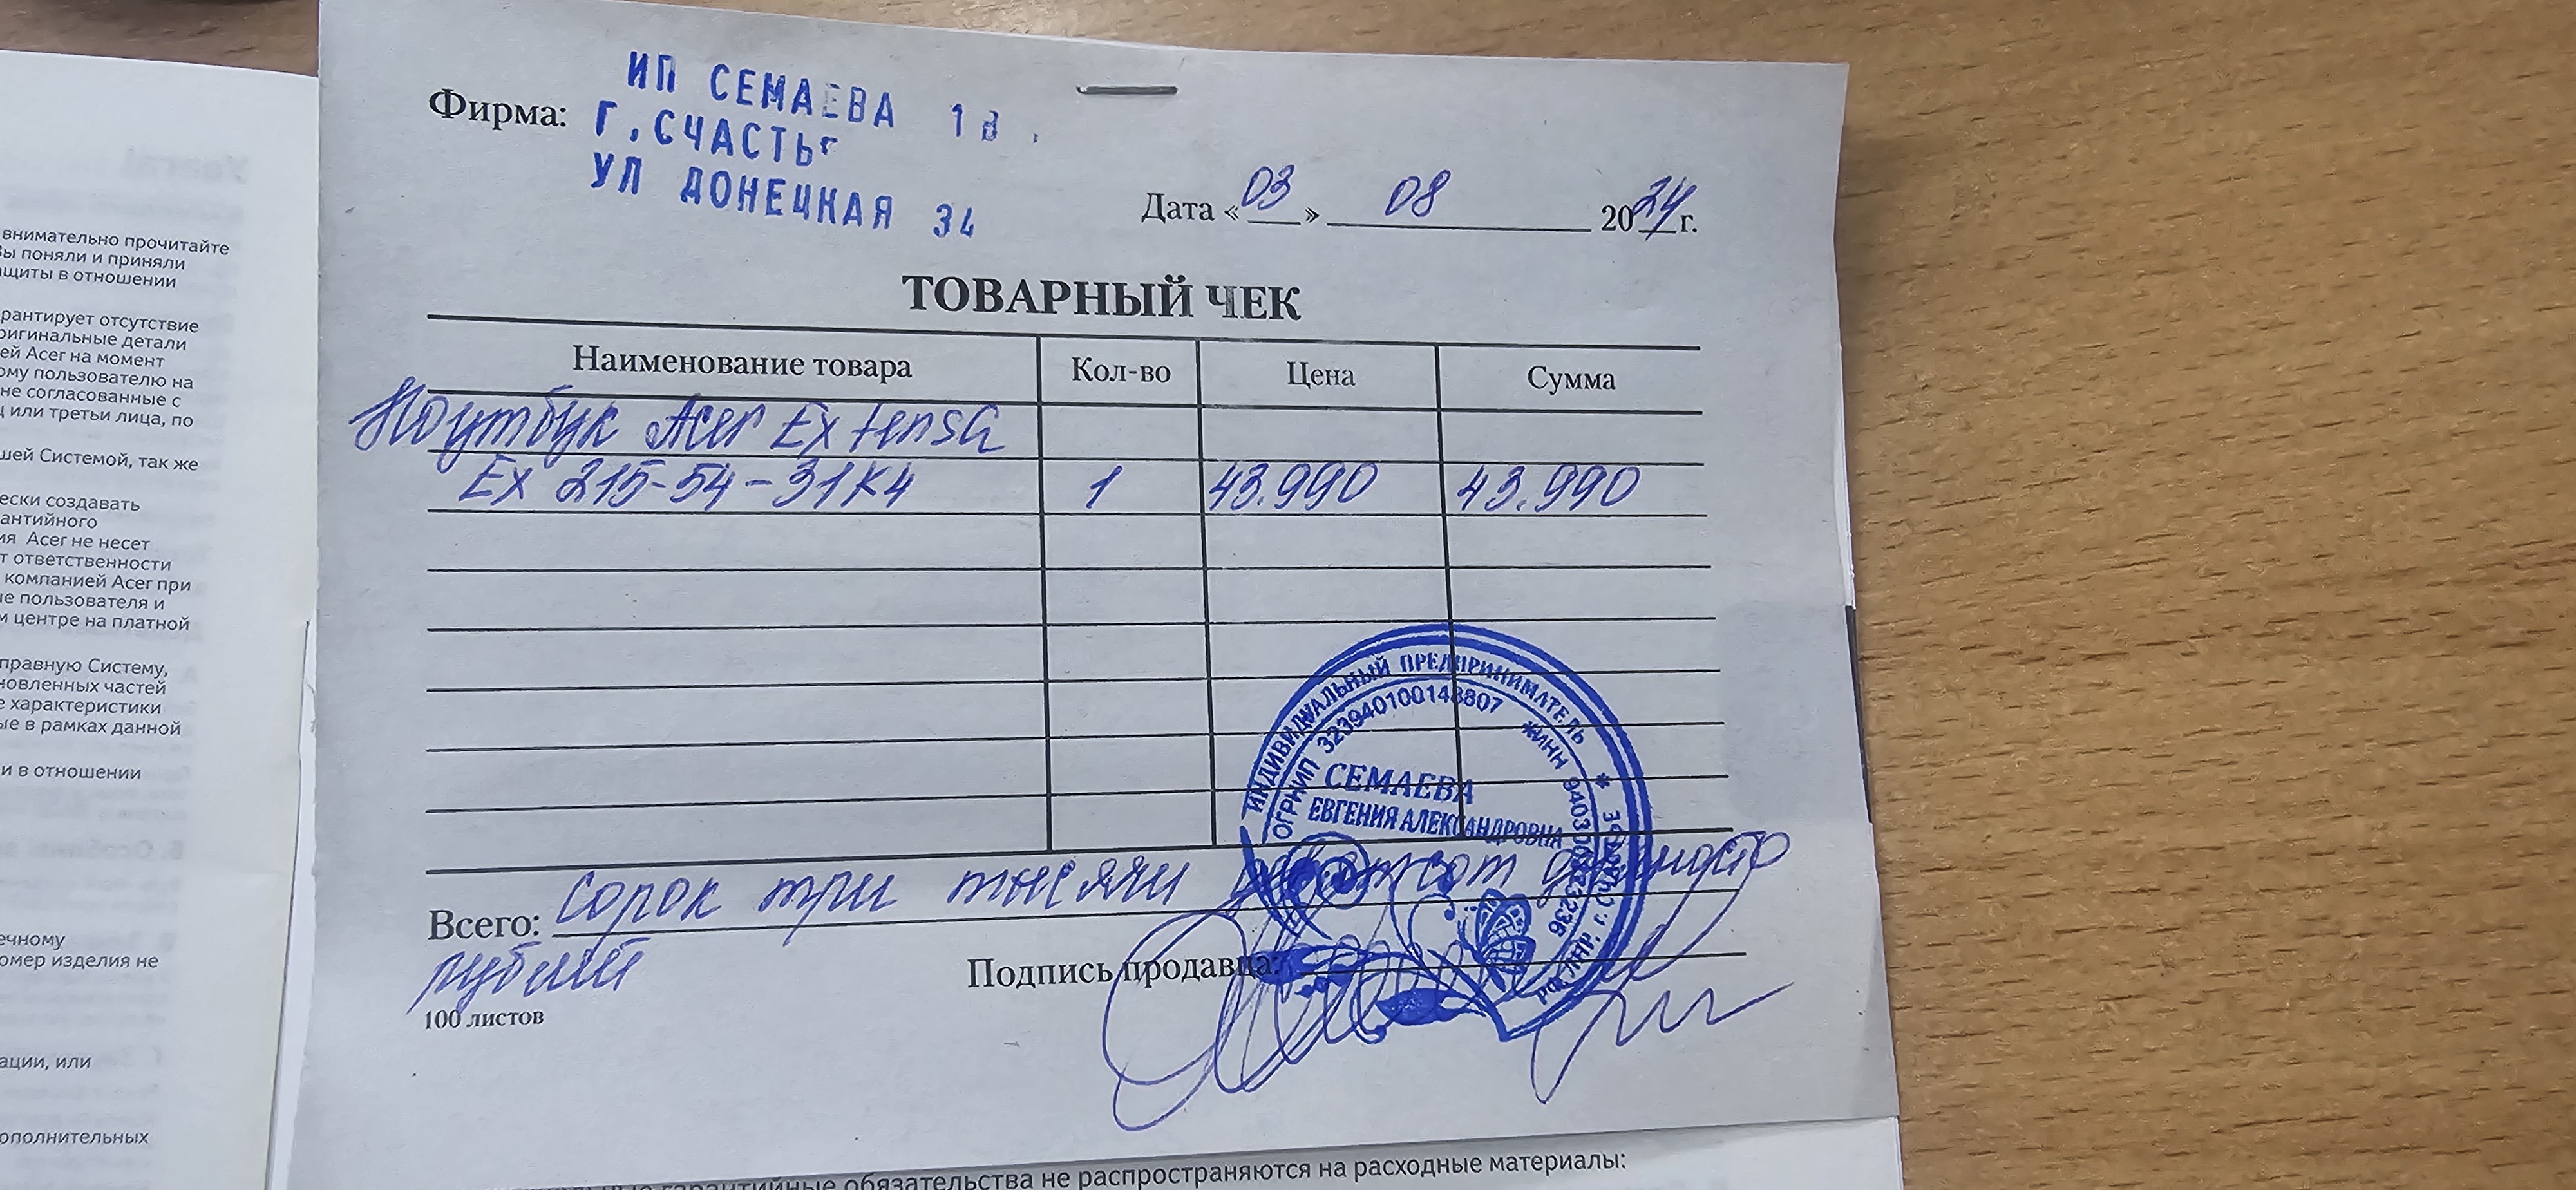 внимательно прочитайте
Вы поняли и приняли
ащиты в отношении
рантирует отсутствие
ригинальные детали
ей Acer на момент
ому пользователю на
не согласованные с
ц или третьи лица, по
шей Системой, так же
ески создавать
антийного
ия Acer не несет
т ответственности
компанией Acer при
ие пользователя и
м центре на платной
правную Систему,
новленных частей
е характеристики
ые в рамках данной
и в отношении
ечному
омер изделия не
ации, или
ополнительных
ИП СЕМАЕВА
Фирма: Г.СЧАСТЬ
УЛ ДОНЕЦКАЯ 34
Дата «03» 08 2024 г.
ТОВАРНЫЙ ЧЕК
Наименование товара Кол-во Цена Сумма
Ноутбук Acer Extensa
EX 215-54-31K4 1 43.990 43.990
ИНДИВИДУАЛЬНЫЙ ПРЕДПРИНИМАТЕЛЬ
ОГРНИП 323940100148807
ИНН
СЕМАЕВА
ЕВГЕНИЯ АЛЕКСАНДРОВНА
Всего: сорок три тысячи девятьсот девяносто
рублей
Подпись продавца:
100 листов
гарантийные обязательства не распространяются на расходные материалы: